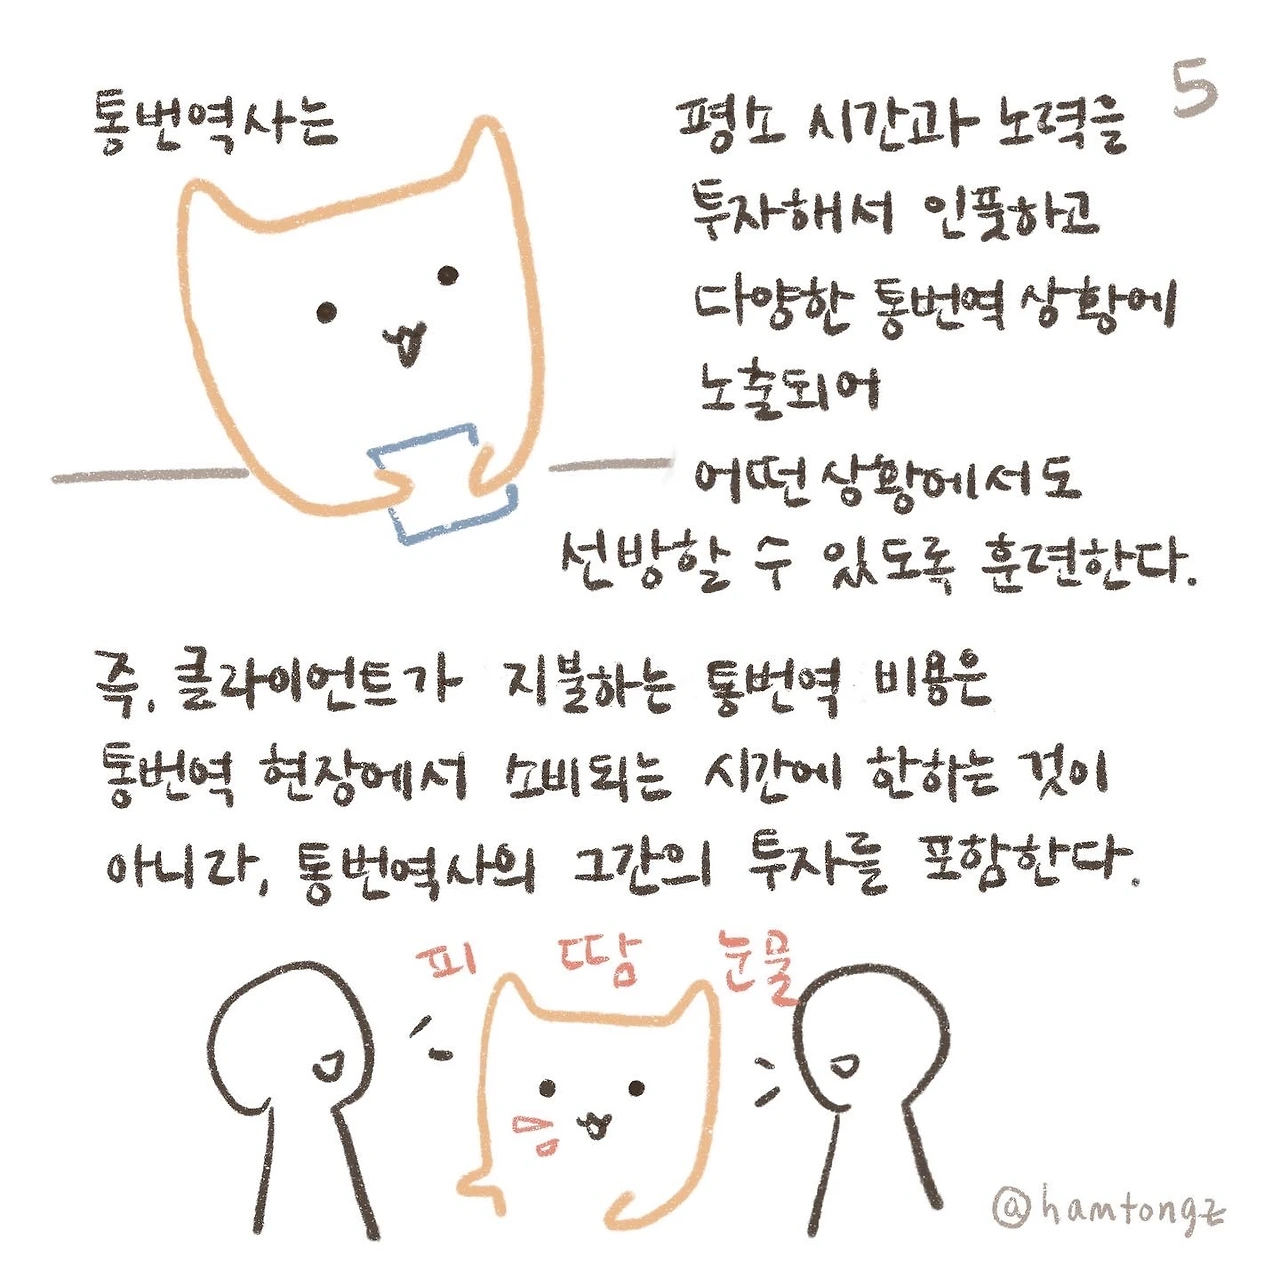 5
통번역사는
평소 시간과 노력을
투자해서 인풋하고
다양한 통번역 상황에
노출되어
어떤 상황에서도
선방할 수 있도록 훈련한다.
즉, 클라이언트가 지불하는 통번역 비용은
통번역 현장에서 소비되는 시간에 한하는 것이
아니라, 통번역사의 그간의 투자를 포함한다.
피 땀 눈물
@hamtongz